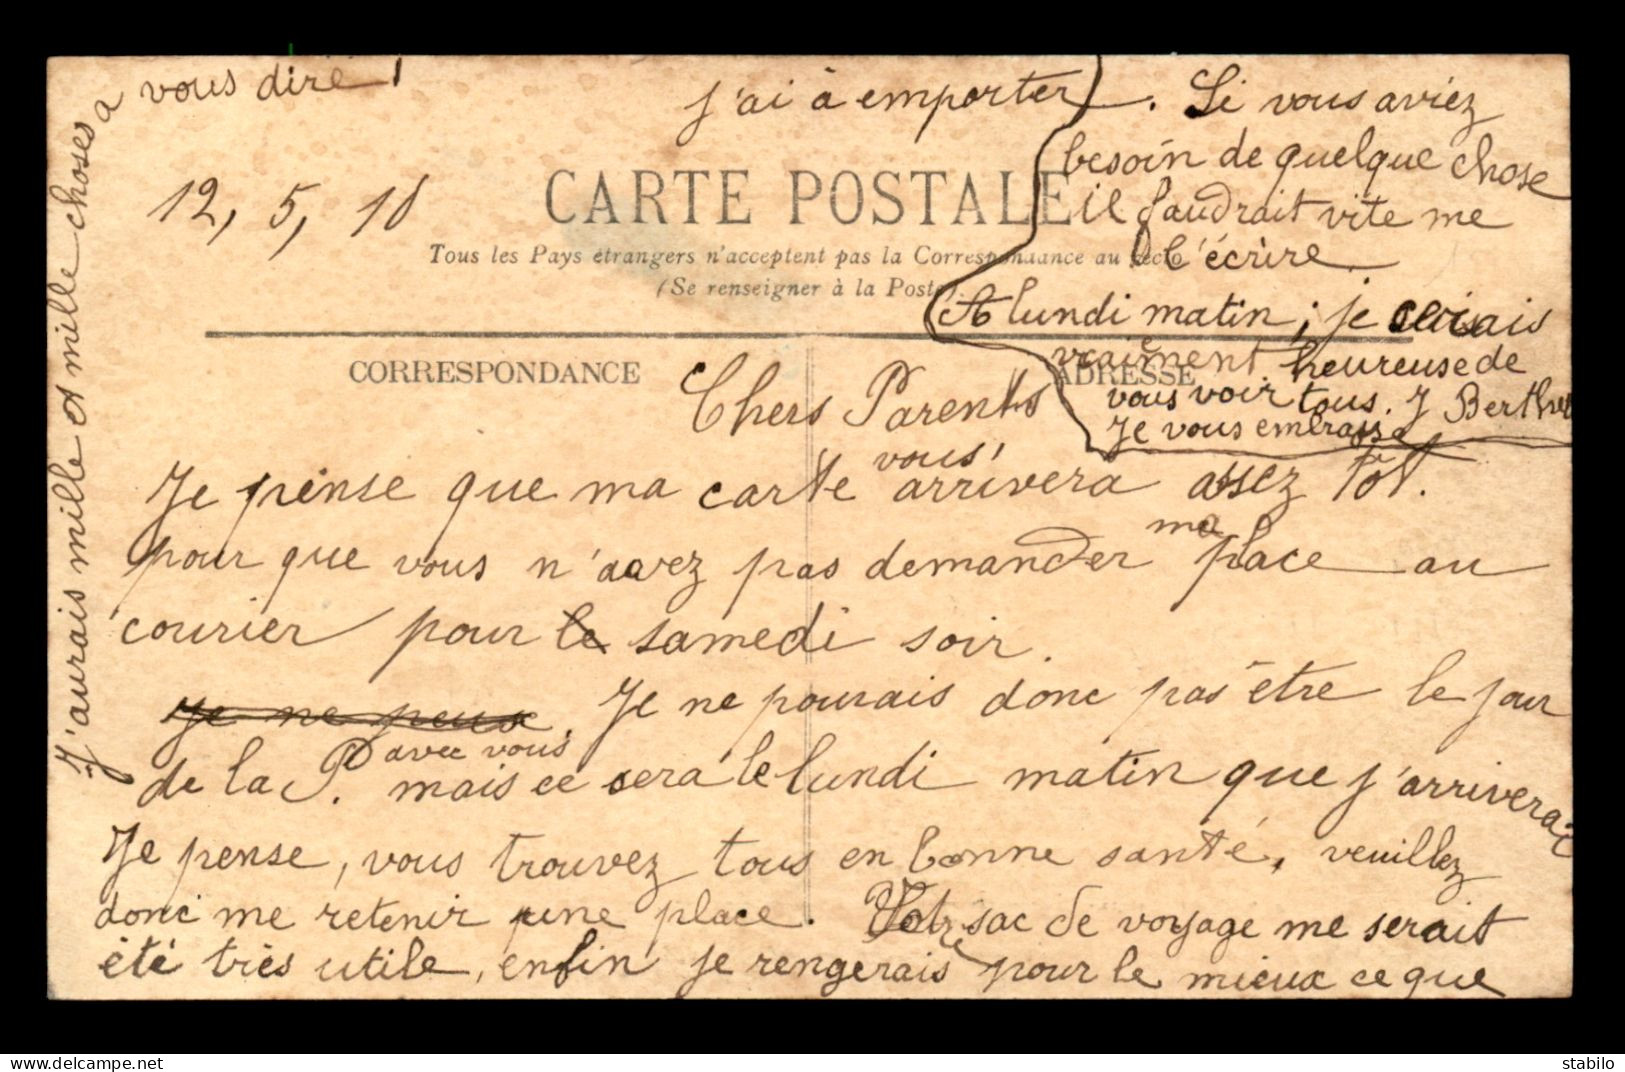 12, 5, 10
CARTE POSTALE
Tous les Pays étrangers n'acceptent pas la Correspondance au recto
(Se renseigner à la Poste).
CORRESPONDANCE
ADRESSE
Chers Parents
Je pense que ma carte vous arrivera assez tôt.
pour que vous n'avez pas demander ma place au
courier pour le samedi soir.
Je ne peux. Je ne pourais donc pas être le jour
de la P. avec vous
mais ce sera le lundi matin que j'arriverai
Je pense, vous trouvez tous en bonne santé, veuillez
donc me retenir une place. Votre sac de voyage me serait
été très utile, enfin je rengerais pour le mieux ce que
j'ai à emporter. Si vous aviez
besoin de quelque chose
il faudrait vite me
l'écrire
A lundi matin ; je serais
vraiement heureuse de
vous voir tous. J Berthe
Je vous embrasse
J'aurais mille et mille choses a
vous dire !
stabilo